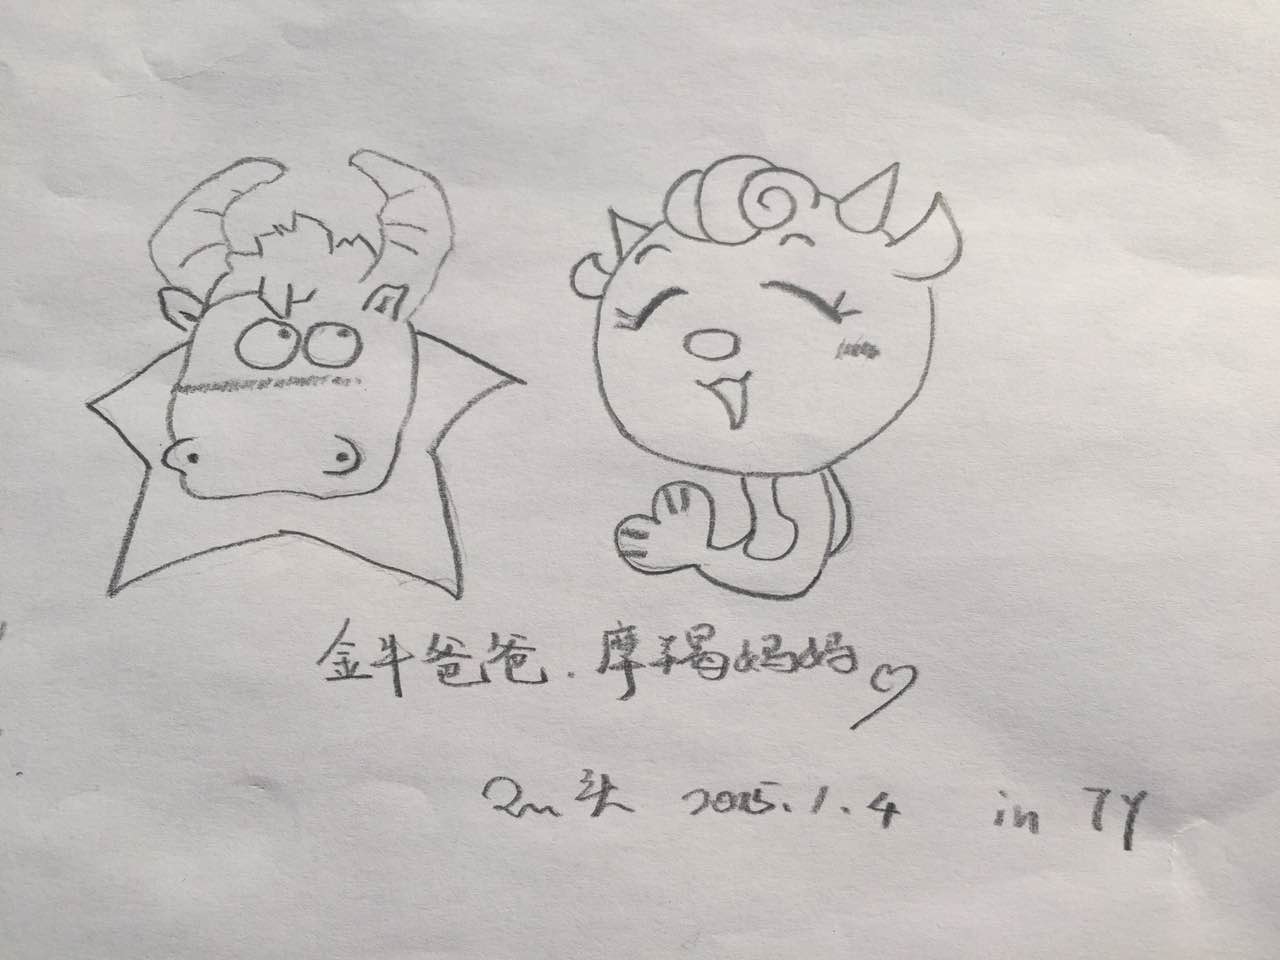 金牛爸爸.摩羯妈妈♡
2m头 2015.1.4 in TY